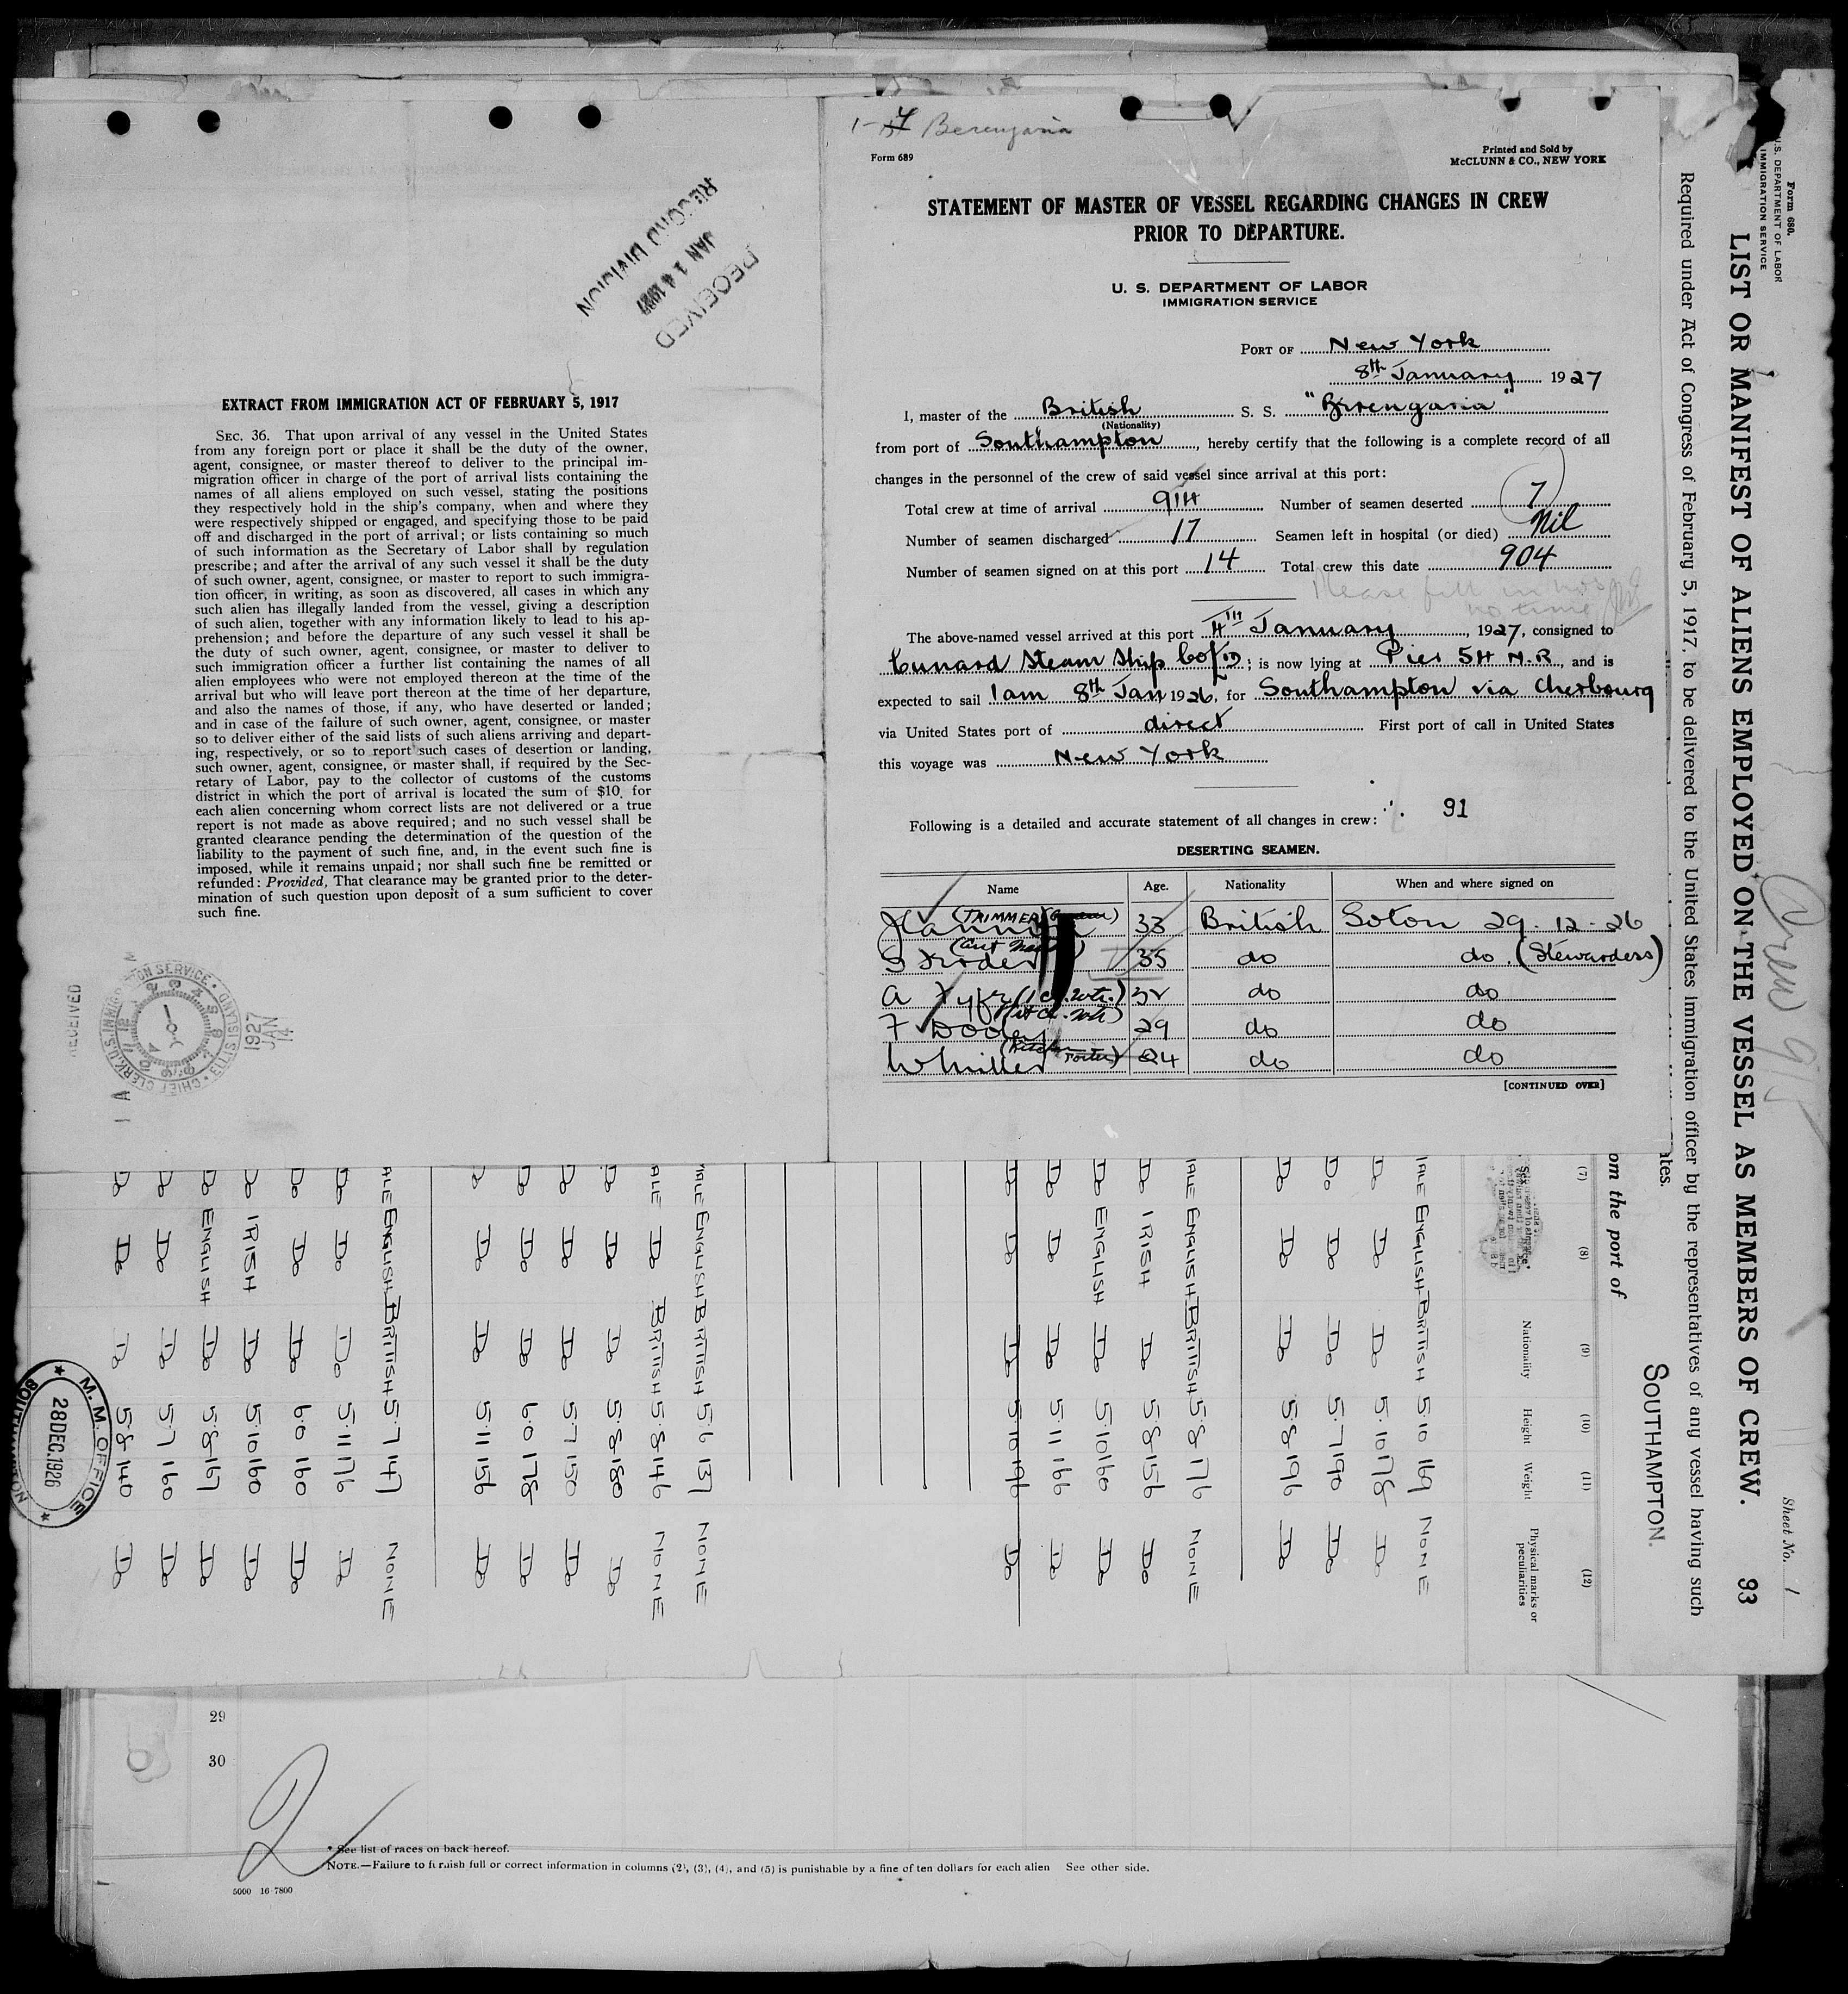 1-4 Berengaria
Form 689
Printed and Sold by
McCLUNN & CO., NEW YORK
STATEMENT OF MASTER OF VESSEL REGARDING CHANGES IN CREW
PRIOR TO DEPARTURE.
U. S. DEPARTMENT OF LABOR
IMMIGRATION SERVICE
PORT OF New York
8th January 1927
I, master of the British S. S. "Berengaria"
(Nationality)
from port of Southampton, hereby certify that the following is a complete record of all
changes in the personnel of the crew of said vessel since arrival at this port:
Total crew at time of arrival 914 Number of seamen deserted 7
Number of seamen discharged 17 Seamen left in hospital (or died) Nil
Number of seamen signed on at this port 14 Total crew this date 904
Please fill in
no time
The above-named vessel arrived at this port 4TH January, 1927, consigned to
Cunard Steam Ship Co LTD; is now lying at Pier 54 N.R, and is
expected to sail 1am 8th Jan 1926, for Southampton via Cherbourg
via United States port of direct First port of call in United States
this voyage was New York
Following is a detailed and accurate statement of all changes in crew: 91
DESERTING SEAMEN.
Name Age. Nationality When and where signed on
(TRIMMER) 33 British Soton 29.12.26
S 35 do do. (Stewardess)
A Fyfe 32 do do
F 29 do do
W Miller (Kitchen Porter) 24 do do
[CONTINUED OVER]
RECEIVED
JAN 14 1927
RECORD DIVISION
EXTRACT FROM IMMIGRATION ACT OF FEBRUARY 5, 1917
SEC. 36. That upon arrival of any vessel in the United States
from any foreign port or place it shall be the duty of the owner,
agent, consignee, or master thereof to deliver to the principal im-
migration officer in charge of the port of arrival lists containing the
names of all aliens employed on such vessel, stating the positions
they respectively hold in the ship's company, when and where they
were respectively shipped or engaged, and specifying those to be paid
off and discharged in the port of arrival; or lists containing so much
of such information as the Secretary of Labor shall by regulation
prescribe; and after the arrival of any such vessel it shall be the duty
of such owner, agent, consignee, or master to report to such immigra-
tion officer, in writing, as soon as discovered, all cases in which any
such alien has illegally landed from the vessel, giving a description
of such alien, together with any information likely to lead to his ap-
prehension; and before the departure of any such vessel it shall be
the duty of such owner, agent, consignee, or master to deliver to
such immigration officer a further list containing the names of all
alien employees who were not employed thereon at the time of the
arrival but who will leave port thereon at the time of her departure,
and also the names of those, if any, who have deserted or landed;
and in case of the failure of such owner, agent, consignee, or master
so to deliver either of the said lists of such aliens arriving and depart-
ing, respectively, or so to report such cases of desertion or landing,
such owner, agent, consignee, or master shall, if required by the Sec-
retary of Labor, pay to the collector of customs of the customs
district in which the port of arrival is located the sum of $10 for
each alien concerning whom correct lists are not delivered or a true
report is not made as above required; and no such vessel shall be
granted clearance pending the determination of the question of the
liability to the payment of such fine, and, in the event such fine is
imposed, while it remains unpaid; nor shall such fine be remitted or
refunded: Provided, That clearance may be granted prior to the deter-
mination of such question upon deposit of a sum sufficient to cover
such fine.
RECEIVED
CHIEF CLERK U.S. IMMIGRATION SERVICE ELLIS ISLAND
1927
JAN
14
Form 680.
U.S. DEPARTMENT OF LABOR
IMMIGRATION SERVICE
Sheet No. 1
LIST OR MANIFEST OF ALIENS EMPLOYED ON THE VESSEL AS MEMBERS OF CREW. 93
Crew 915
Required under Act of Congress of February 5, 1917, to be delivered to the United States immigration officer by the representatives of any vessel having such
ates.
om the port of SOUTHAMPTON.
(7) (8) (9) (10) (11) (12)
Sex Nationality Height Weight Physical marks or
peculiarities
ALE ENGLISH BRITISH 5.10 169 NONE
Do Do Do 5.10 178 Do
Do Do Do 5.7 190 Do
Do Do Do 5.8 196 Do
ALE ENGLISH BRITISH 5.8 176 NONE
Do IRISH Do 5.8 156 Do
Do ENGLISH Do 5.10 160 Do
Do Do Do 5.11 166 Do
Do Do Do 5.10 196 Do
MALE ENGLISH BRITISH 5.6 137 NONE
ALE Do BRITISH 5.8 146 NONE
Do Do Do 5.8 180 Do
Do Do Do 5.7 150 Do
Do Do Do 6.0 178 Do
Do Do Do 5.11 156 Do
ALE ENGLISH BRITISH 5.7 147 NONE
Do Do Do 5.11 176 Do
Do Do Do 6.0 160 Do
Do IRISH Do 5.10 160 Do
Do ENGLISH Do 5.8 167 Do
Do Do Do 5.7 160 Do
Do Do Do 5.8 140 Do
M. M. OFFICE
28 DEC. 1926
SOUTHAMPTON
29
30
2
* See list of races on back hereof.
NOTE.—Failure to furnish full or correct information in columns (2), (3), (4), and (5) is punishable by a fine of ten dollars for each alien See other side.
5000 16-7800